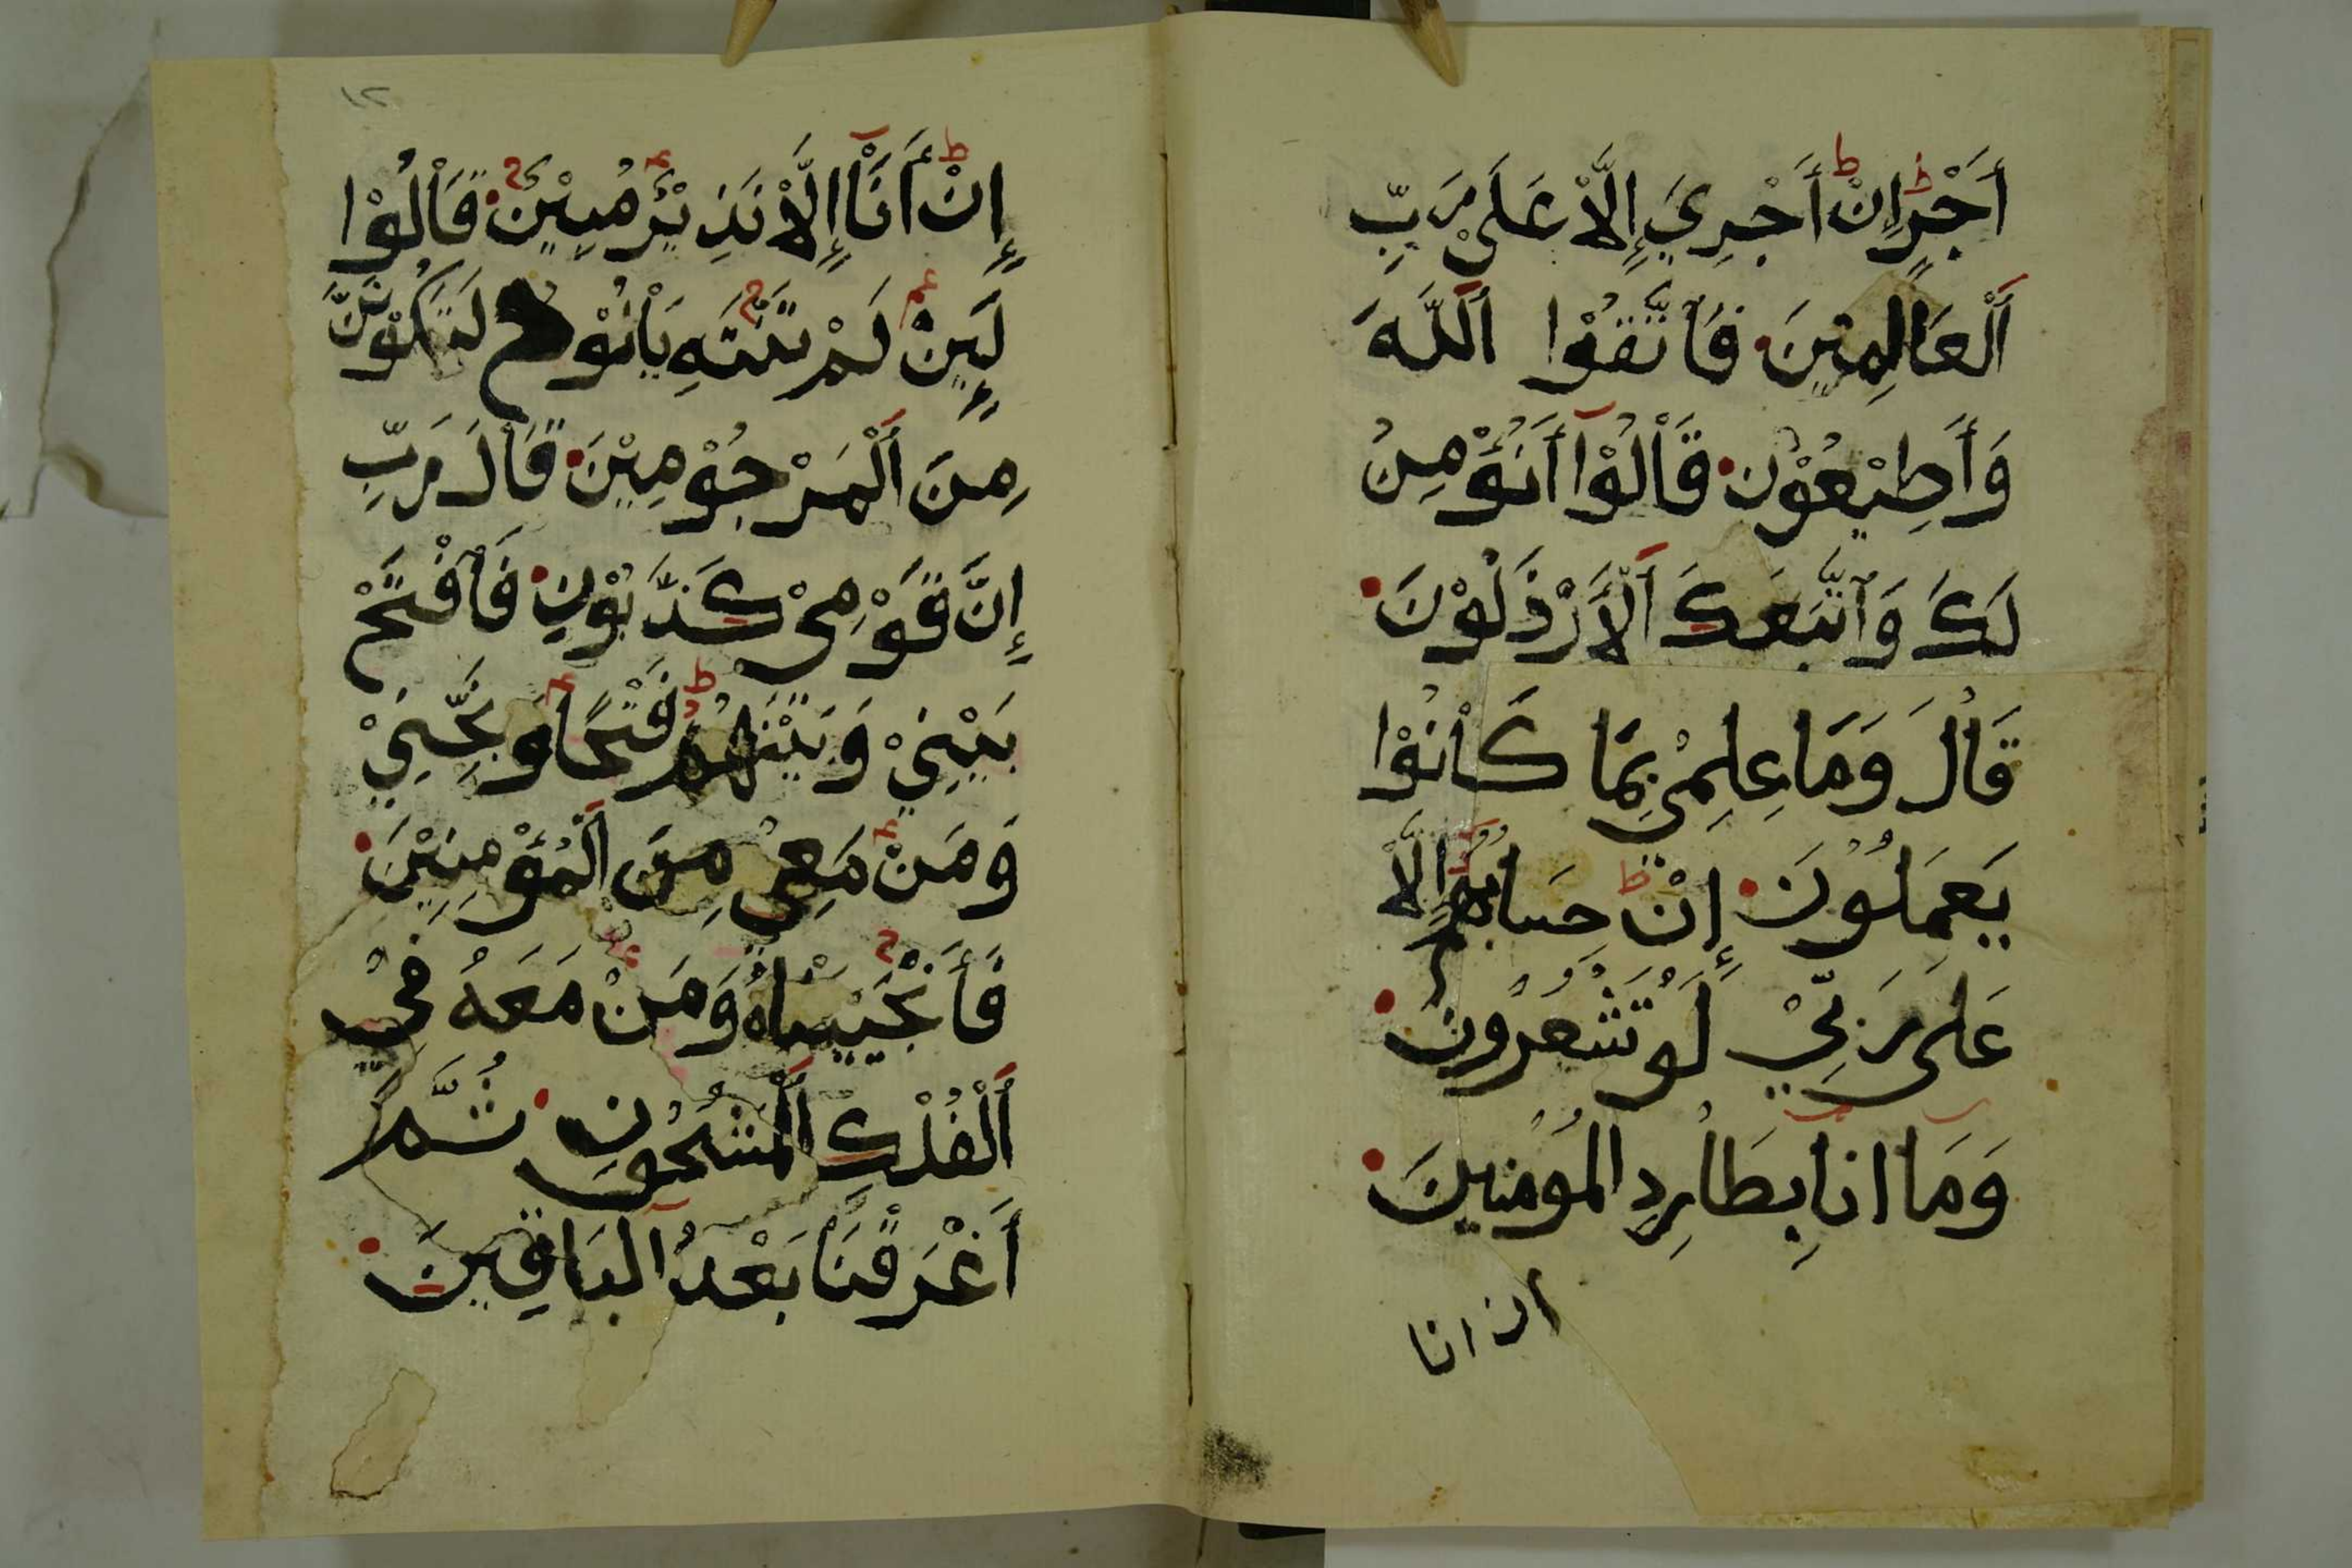 أَجْرٍ إِنْ أَجْرِيَ إِلَّا عَلَىْ رَبِّ
اَلْعَالِمِيْنَ فَاْتَّقُوْا اَللَّهَ
وَأَطِيْعُوْنِ قَاْلُوْآ أَنُؤْمِنُ
لَكَ وَاَتَّبَعَكَ اَلْأَرْذَلُوْنَ
قَاْلَ وَمَا عِلْمِيْ بِمَا كَاْنُوْا
يَعْمَلُوْنَ إِنْ حِسَابُهُمْ إِلَّا
عَلَى رَبِّيْ لَوْ تَشْعُرُونَ
وَمَآ انَآ بِطَارِدِ الْمُؤمِنِينَ
ان انا
١٢
إِنْ أَنَاْ إِلَّاْ نَذِيْرٌ مُبِيْنٌ قَاْلُوْا
لَئِنْ لَمْ تَنْتَهِ يَاْنُوْحُ لَتَكُوْنَنَّ
مِنَ اَلْمَرْجُوْمِيْنَ قَاْلَ رَبِّ
إِنَّ قَوْمِيْ كَذَّبُوْنِ فَاْفْتَحْ
بَيْنِيْ وَبَيْنَهُمْ فَتْحًا وَنَجِّنِيْ
وَمَنْ مَعِيْ مِنَ اَلْمُؤْمِنِيْنَ
فَأَنْجَيْنَاْهُ وَمَنْ مَعَهُ فِيْ
اَلْفُلْكِ اَلْمَشْحُوْنِ ثُمَّ
أَغْرَقْنَاْ بَعْدُ اَلبَاقِينَ